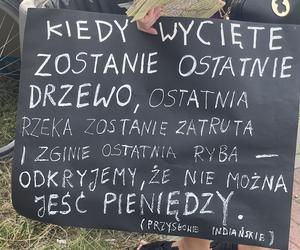 KIEDY WYCIĘTE
ZOSTANIE OSTATNIE
DRZEWO, OSTATNIA
RZEKA ZOSTANIE ZATRUTA
I ZGINIE OSTATNIA RYBA –
ODKRYJEMY, ŻE NIE MOŻNA
JEŚĆ PIENIĘDZY.
(PRZYSŁOWIE INDIAŃSKIE)